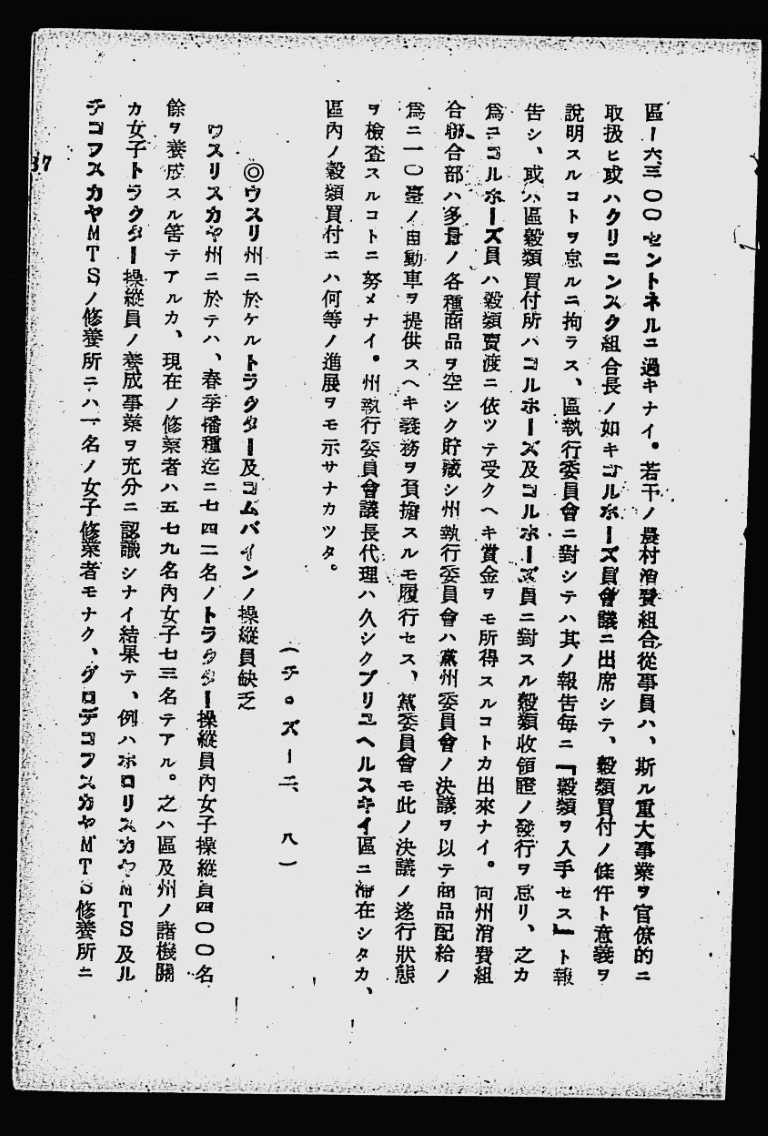 區ー六、三〇〇セントネルニ過キナイ。若干ノ農村消費組合從事員ハ、斯ル重大事業ヲ官僚的ニ
取扱ヒ或ハクリニンスク組合長ノ如キコルホーズ員會議ニ出席シテ、穀類買付ノ條件ト意義ヲ
說明スルコトヲ怠ルニ拘ラス、區執行委員會ニ對シテハ其ノ報告每ニ『穀類ヲ入手セス』ト報
告シ、或ハ區穀類買付所ハコルホーズ及コルホーズ員ニ對スル穀類收領證ノ發行ヲ怠リ、之カ
爲ニコルホーズ員ハ穀類賣渡ニ依ツテ受クヘキ賞金ヲモ所得スルコトカ出來ナイ。尙州消費組
合聯合部ハ多量ノ各種商品ヲ空シク貯藏シ州執行委員會ハ黨州委員會ノ決議ヲ以テ商品配給ノ
爲ニ一〇臺ノ自動車ヲ提供スヘキ義務ヲ負擔スルモ履行セス、黨委員會モ此ノ決議ノ遂行狀態
ヲ檢査スルコトニ努メナイ。州執行委員會議長代理ハ久シクプリユヘルスキイ區ニ滯在シタカ、
區內ノ穀類買付ニハ何等ノ進展ヲモ示サナカツタ。
(チ。ズー二、八)
◎ウスリ州ニ於ケルトラクター及コムバインノ操縱員缺乏
ウスリスカヤ州ニ於テハ、春季播種迄ニ七四二名ノトラクター操縱員內女子操縱員四〇〇名
餘ヲ養成スル筈テアルカ、現在ノ修業者ハ五七九名內女子七三名テアル。之ハ區及州ノ諸機關
カ女子トラクター操縱員ノ養成事業ヲ充分ニ認識シナイ結果テ、例ハホロリスカヤMTS及ル
チコフスカヤMTSノ修養所ニハ一名ノ女子修業者モナク、グロデコフスカヤMTS修養所ニ
37